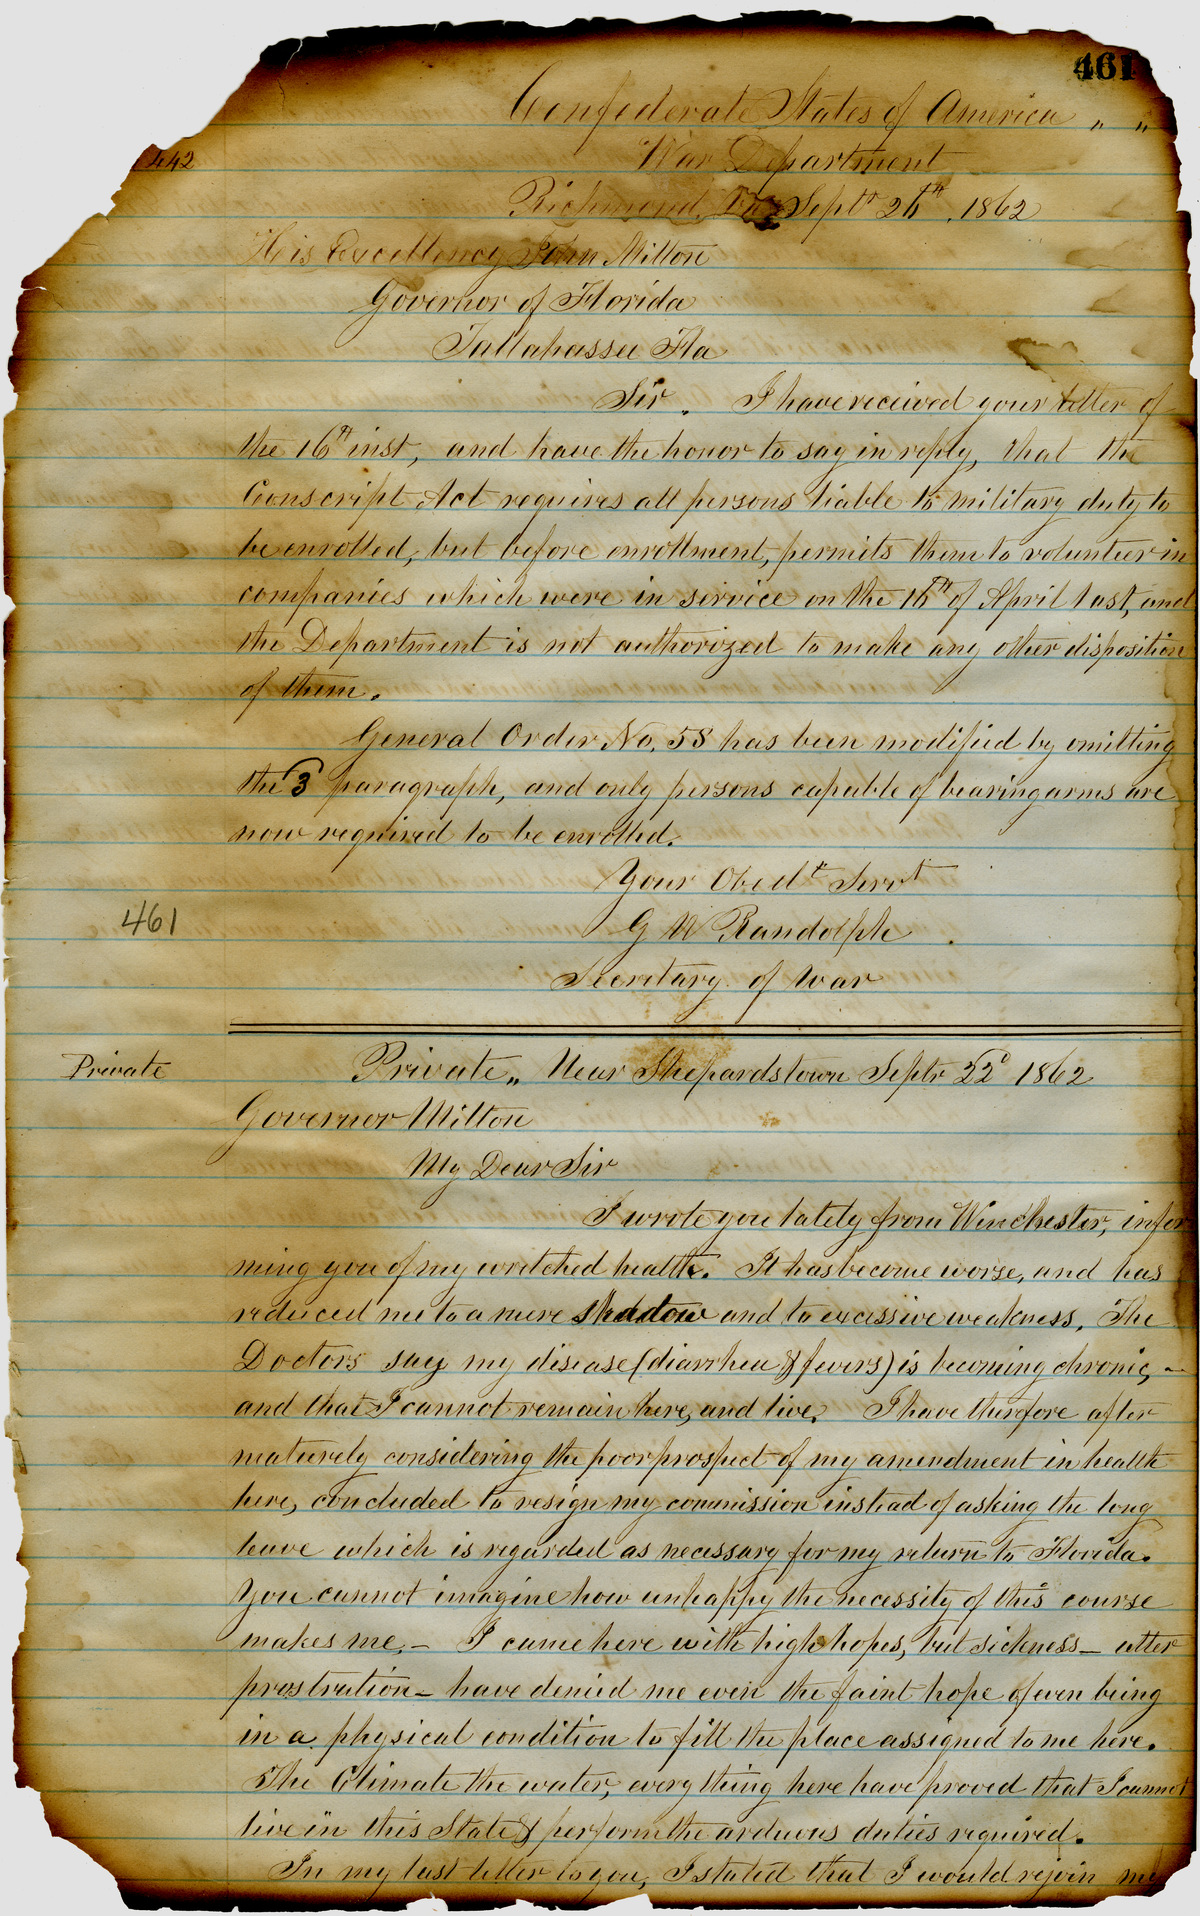 461
Confederate States of America " "
442
War Department
Richmond Va Septr 26th, 1862
His Excellency John Milton
Governor of Florida
Tallahassee Fla
Sir. I have received your letter of
the 16th inst, and have the honor to say in reply, that the
Conscript Act requires all persons liable to military duty to
be enrolled, but before enrollment, permits them to volunteer in
companies which were in service on the 16th of April last, and
the Department is not authorized to make any other disposition
of them.
General Order No. 58 has been modified by omitting
the 3 paragraph, and only persons capable of bearing arms are
now required to be enrolled.
Your Obedt Servt
461
G W Randolph
Secretary of War
Private
Private " Near Shepardstown Septr 22d 1862
Governor Milton
My Dear Sir
I wrote you lately from Winchester, infor
ming you of my wretched health. It has become worse, and has
reduced me to a mere shadow and to excessive weakness. The
Doctors say my disease (diarrhea & fevers) is becoming chronic, -
and that I cannot remain here, and live. I have therefore after
maturely considering the poor prospect of my amendment in health
here, concluded to resign my commission instead of asking the long
leave which is regarded as necessary for my return to Florida.
You cannot imagine how unhappy the necessity of this course
makes me. - I came here with high hopes, but sickness - utter
prostration - have denied me even the faint hope of even being
in a physical condition to fill the place assigned to me here.
The Climate the water, every thing here have proved that I cannot
live in this State & perform the arduous duties required.
In my last letter to you, I stated that I would rejoin my